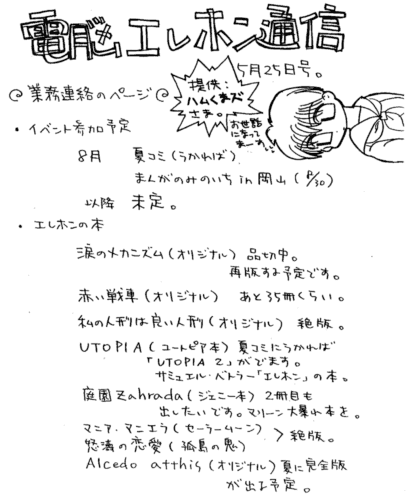 電脳エレホン通信
5月25日号。
@業務連絡のページ@
提供:
ハムくまズ
さま。
お世話
になって
まーす。
・イベント参加予定
8月 夏コミ(うかれば)
まんがのみのいち in 岡山(8/30)
以降 未定。
・エレホンの本
涙のメカニズム(オリジナル) 品切中。
再版する予定です。
赤い戦車(オリジナル) あと35冊くらい。
私の人形は良い人形(オリジナル) 絶版。
UTOPIA(ユートピア本) 夏コミにうかれば
「UTOPIA 2」がでます。
サミュエル・バトラー「エレホン」の本。
庭園Zahrada(ジェニー本) 2冊目も
出したいです。マリーン大暴れ本を。
マニア・マニエラ(セーラームーン)
怒涛の恋愛(孤島の鬼) > 絶版。
Alcedo atthis(オリジナル)夏に完全版
が出る予定。